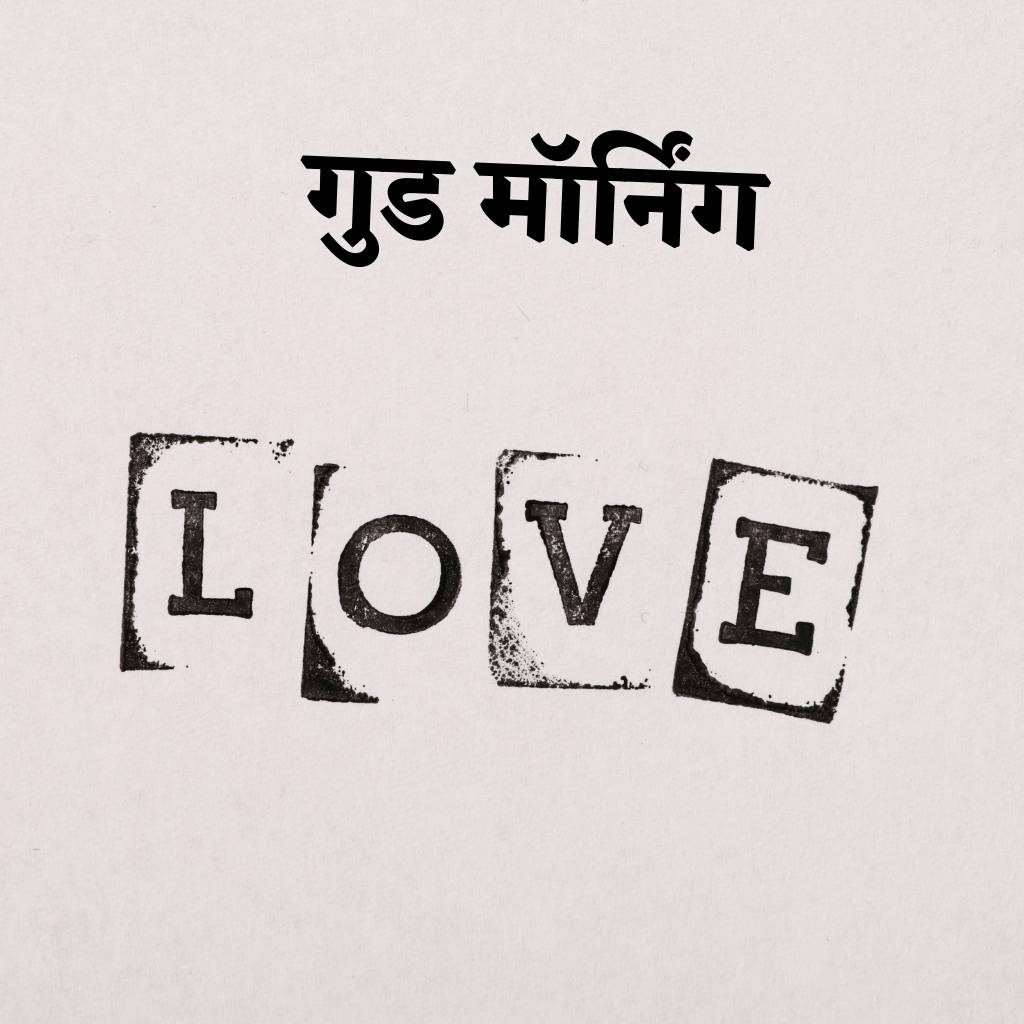 गुड मॉर्निंग
LOVE